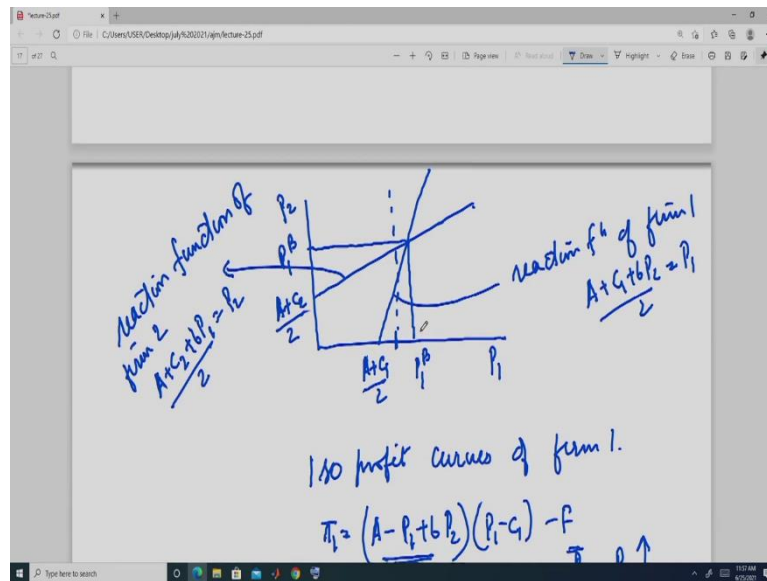 *lecture-25.pdf
File | C:/Users/USER/Desktop/july%202021/ajm/lecture-25.pdf
17 of 27
Page view | Read aloud | Draw | Highlight | Erase
reaction function of
firm 2
A+C2+bP1 = P2
2
P2
P1^B
A+C2
2
A+C1
2
P1^B
P1
reaction fn of firm 1
A+C1+bP2 = P1
2
Iso profit curves of firm 1.
π1 = (A-P1+bP2)(P1-C1) - F
Type here to search
11:57 AM
6/25/2021